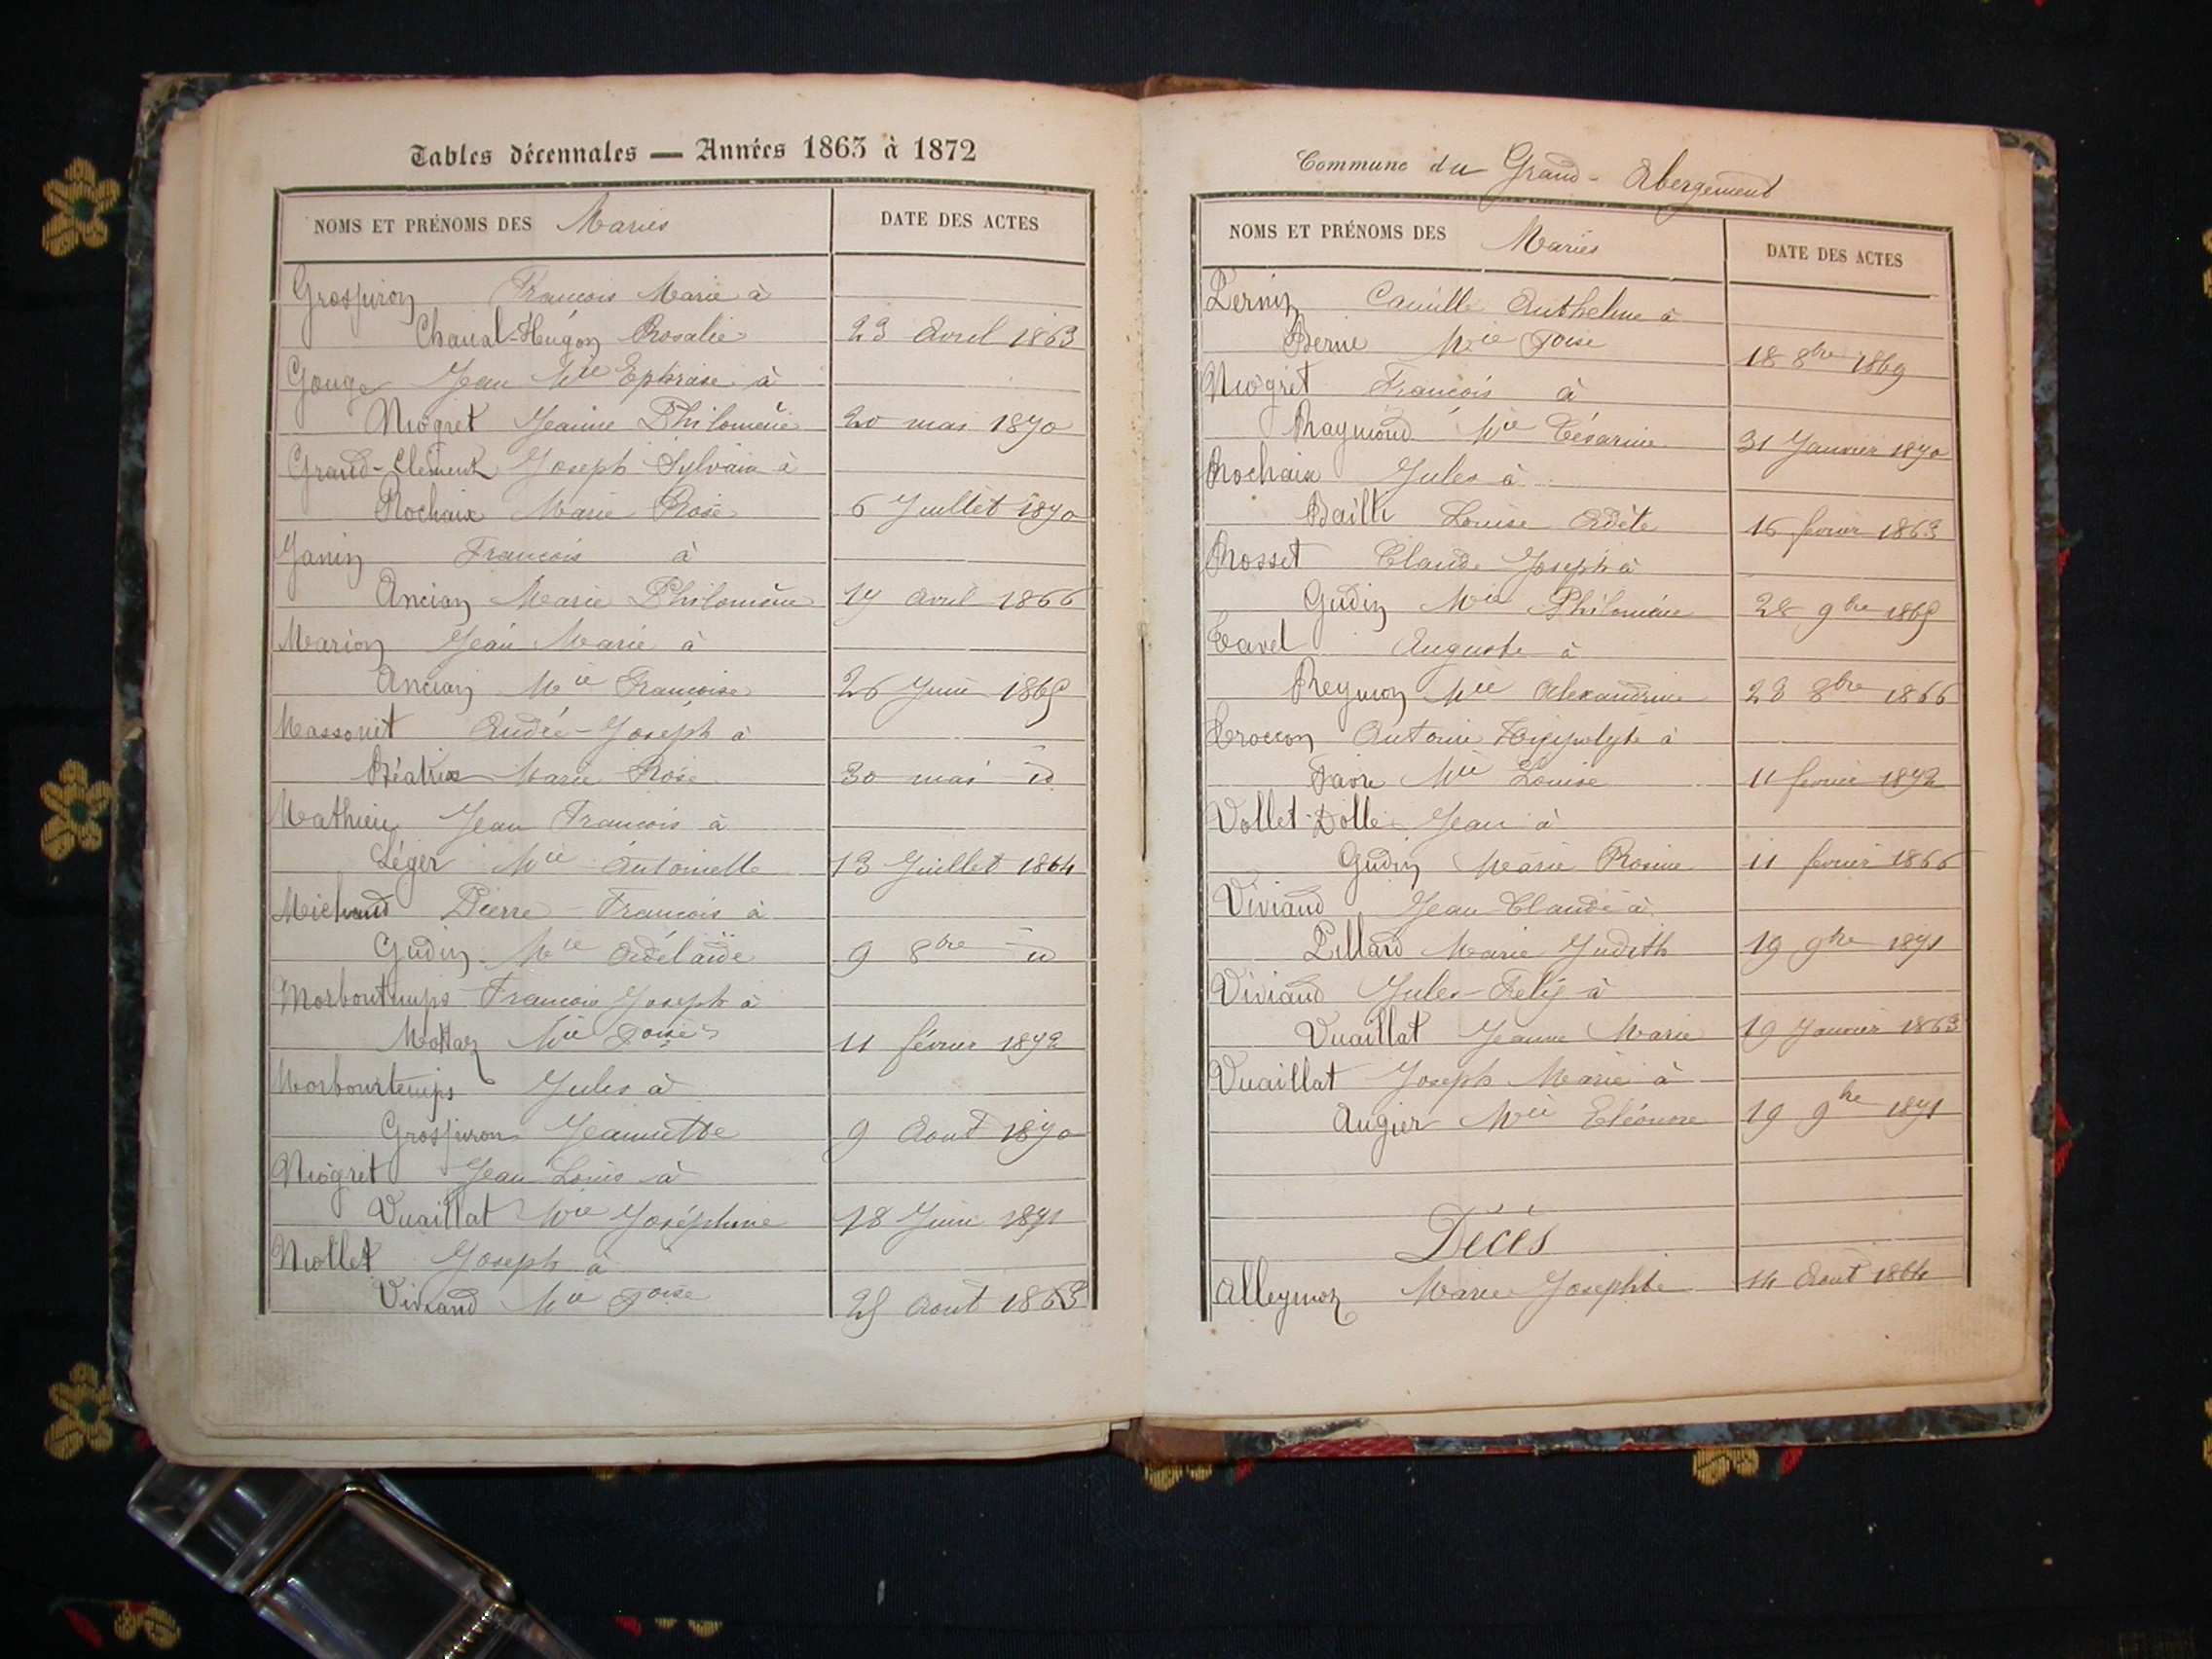 Tables décennales — Années 1863 à 1872
NOMS ET PRÉNOMS DES Mariés DATE DES ACTES
Grospiron François Marie à
Chaval-Hugon Rosalie 23 Avril 1863
Gouge Jean Mie Ephrase à
Niogret Jeanne Philomène 20 mai 1870
Grand-Clément Joseph Sylvain à
Rochaix Marie Rose 6 Juillet 1870
Janin François à
Ancian Marie Philomène 17 Avril 1866
Marion Jean Marie à
Ancian Mie Françoise 26 Juin 1865
Massonit André-Joseph à
Béatrix Marie Rose 30 mai id
Mathieu Jean François à
Léger Mie Antoinette 13 Juillet 1864
Michaud Pierre-François à
Gudin Mie Adélaïde 9 8bre id
Morbontemps François Joseph à
Mottaz Mie Foise 11 février 1872
Morbourtemps Jules à
Grospiron Jeannette 9 Aout 1870
Niogret Jean Louis à
Vuaillat Mie Joséphine 18 Juin 1871
Niollet Joseph à
Viviand Mie Foise 25 Aout 1863
Commune du Grand-Abergement
NOMS ET PRÉNOMS DES Mariés DATE DES ACTES
Pernin Camille Anthelme à
Berne Mie Foise 18 8bre 1869
Niogret François à
Raymond Mie Césarine 31 Janvier 1870
Rochaix Jules à
Bailli Louise Adèle 16 fevrier 1863
Rosset Claude Joseph à
Gudin Mie Philomène 28 9bre 1865
Tavel Auguste à
Reymon Mie Alexandrine 28 8bre 1866
Troccon Antoine Hyppolyte à
Favre Mie Louise 11 fevrier 1872
Vollet-Dolle Jean à
Gudin Marie Rosine 11 fevrier 1866
Viviand Jean-Claude à
Pillard Marie Judith 19 9bre 1871
Viviand Jules-Felix à
Vuaillat Jeanne Marie 19 Janvier 1863
Vuaillat Joseph Marie à
Augier Mie Eléonore 19 9bre 1871
Décès
Alleymoz Marie Josephte 14 Aout 1864